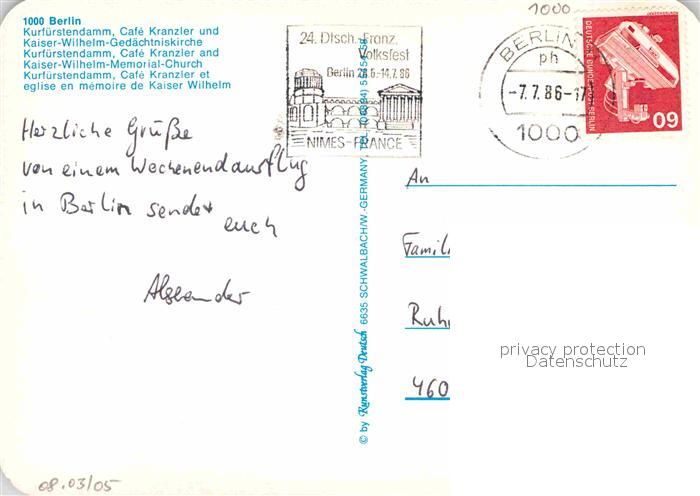 1000
1000 Berlin
Kurfürstendamm, Café Kranzler und
Kaiser-Wilhelm-Gedächtniskirche
Kurfürstendamm, Café Kranzler and
Kaiser-Wilhelm-Memorial-Church
Kurfürstendamm, Café Kranzler et
eglise en mémoire de Kaiser Wilhelm
24. Dtsch.-Franz.
Volksfest
Berlin
NIMES-FRANCE
BERLIN
ph
-7.7.86-17
1000
DEUTSCHE BUNDESPOST BERLIN
60
Herzliche Grüße
von einem Wochenendausflug
in Berlin sendet
euch
Alexander
© by Kunstverlag Deutsch 6635 SCHWALBACH/W.-GERMANY
An
Famili
Ruh
460
privacy protection
Datenschutz
08.03/05